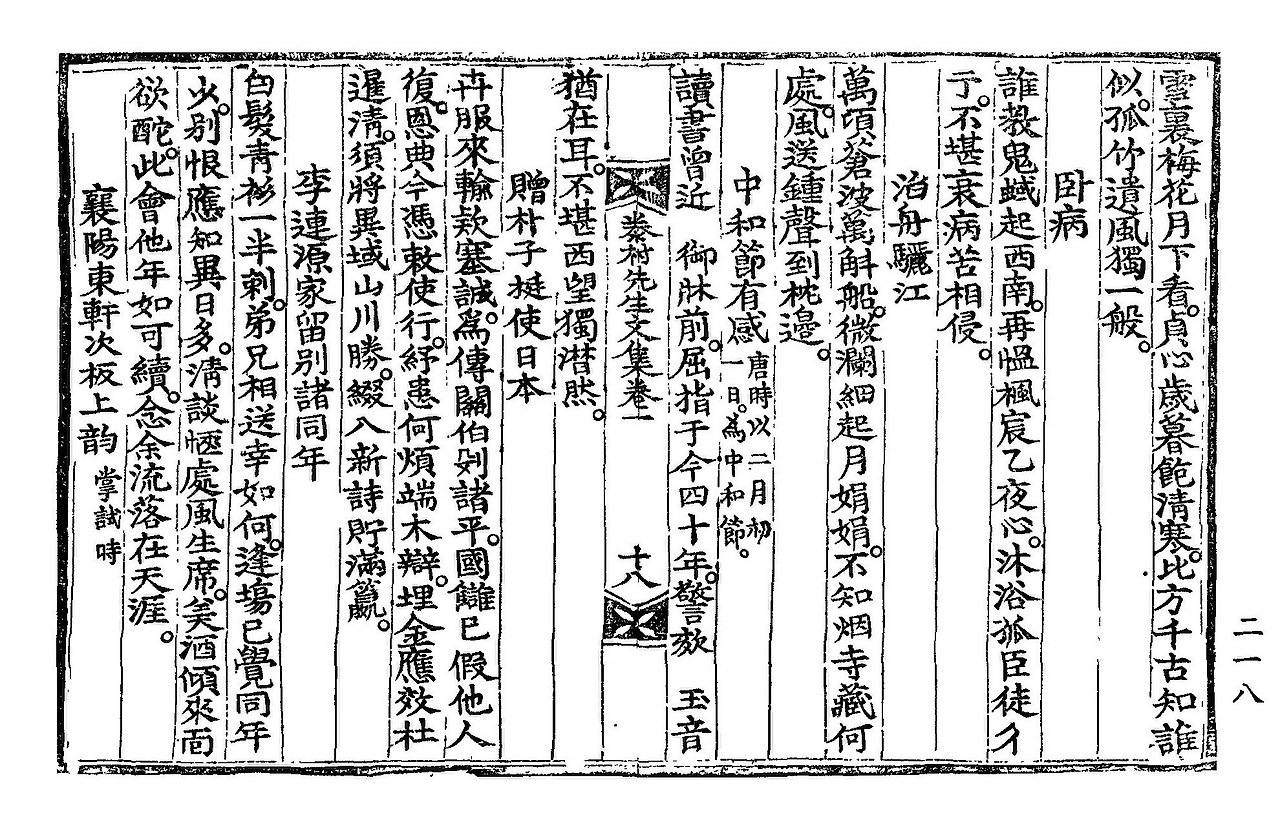 雪裏梅花月下看。貞心歲暮飽清寒。比方千古知誰
似。孤竹遺風獨一般。
臥病
誰教鬼蜮起西南。再慍楓宸乙夜心。沐浴孤臣徒彳
亍。不堪衰病苦相侵。
泊舟驪江
萬頃蒼波萬斛船。微瀾細起月娟娟。不知烟寺藏何
處。風送鍾聲到枕邊。
中和節有感 唐時以二月初一日。爲中和節。
讀書曾近 御牀前。屈指于今四十年。警欬 玉音
先生文集卷一 十八
猶在耳。不堪西望獨潸然。
贈朴子挺使日本
卉服來輸欵塞誠。爲傳關伯剗諸平。國讎已假他人
復。恩典今憑敕使行。紓患何煩端木辯。埋金應效杜
暹淸。須將異域山川勝。綴入新詩貯滿籯。
李連源家留別諸同年
白髮靑衫一半刺。弟兄相送幸如何。逢場已覺同年
少。別恨應知異日多。淸談極處風生席。美酒傾來面
欲酡。此會他年如可續。念余流落在天涯。
襄陽東軒次板上韵 掌試時
二一八